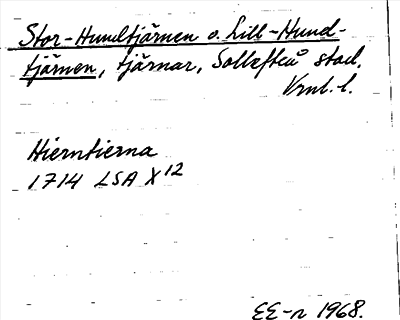 Stor-Hundtjärnen o. Lill-Hund-
tjärnen, tjärnar, Sollefteå stad.
Vrml. l.
Hierntierna
1714 LSA X12
EE-n 1968.